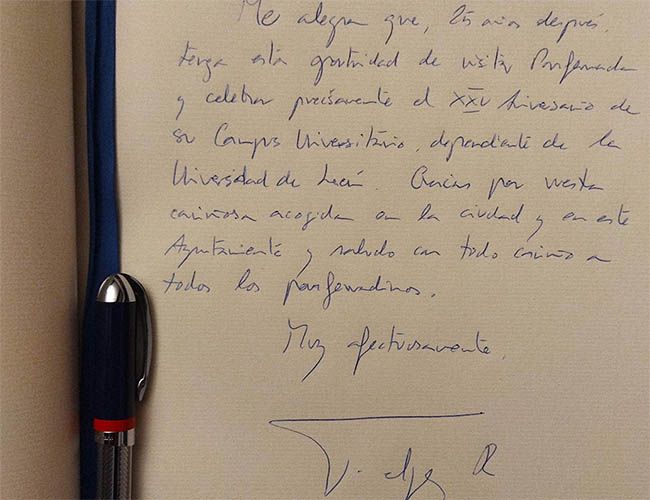 Me alegra que, 25 años después,
tenga esta oportunidad de visitar Ponferrada
y celebrar precisamente el XXV Aniversario de
su Campus Universitario, dependiente de la
Universidad de León. Gracias por vuestra
cariñosa acogida en la ciudad y en este
Ayuntamiento y saludo con todo cariño a
todos los ponferradinos.
Muy afectuosamente,
R